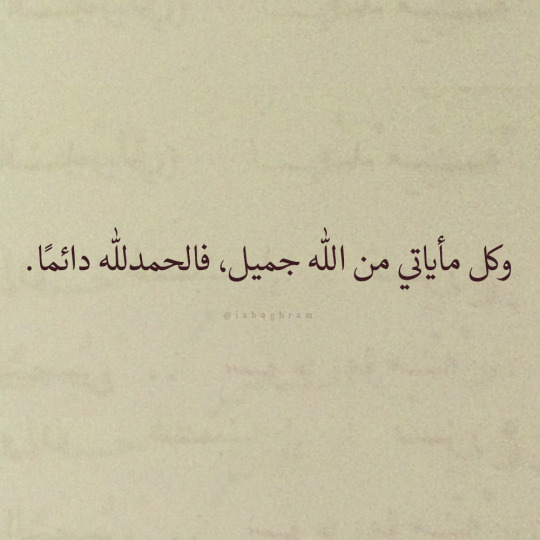 وكل مأياتي من الله جميل، فالحمدلله دائمًا.
@iaboghram